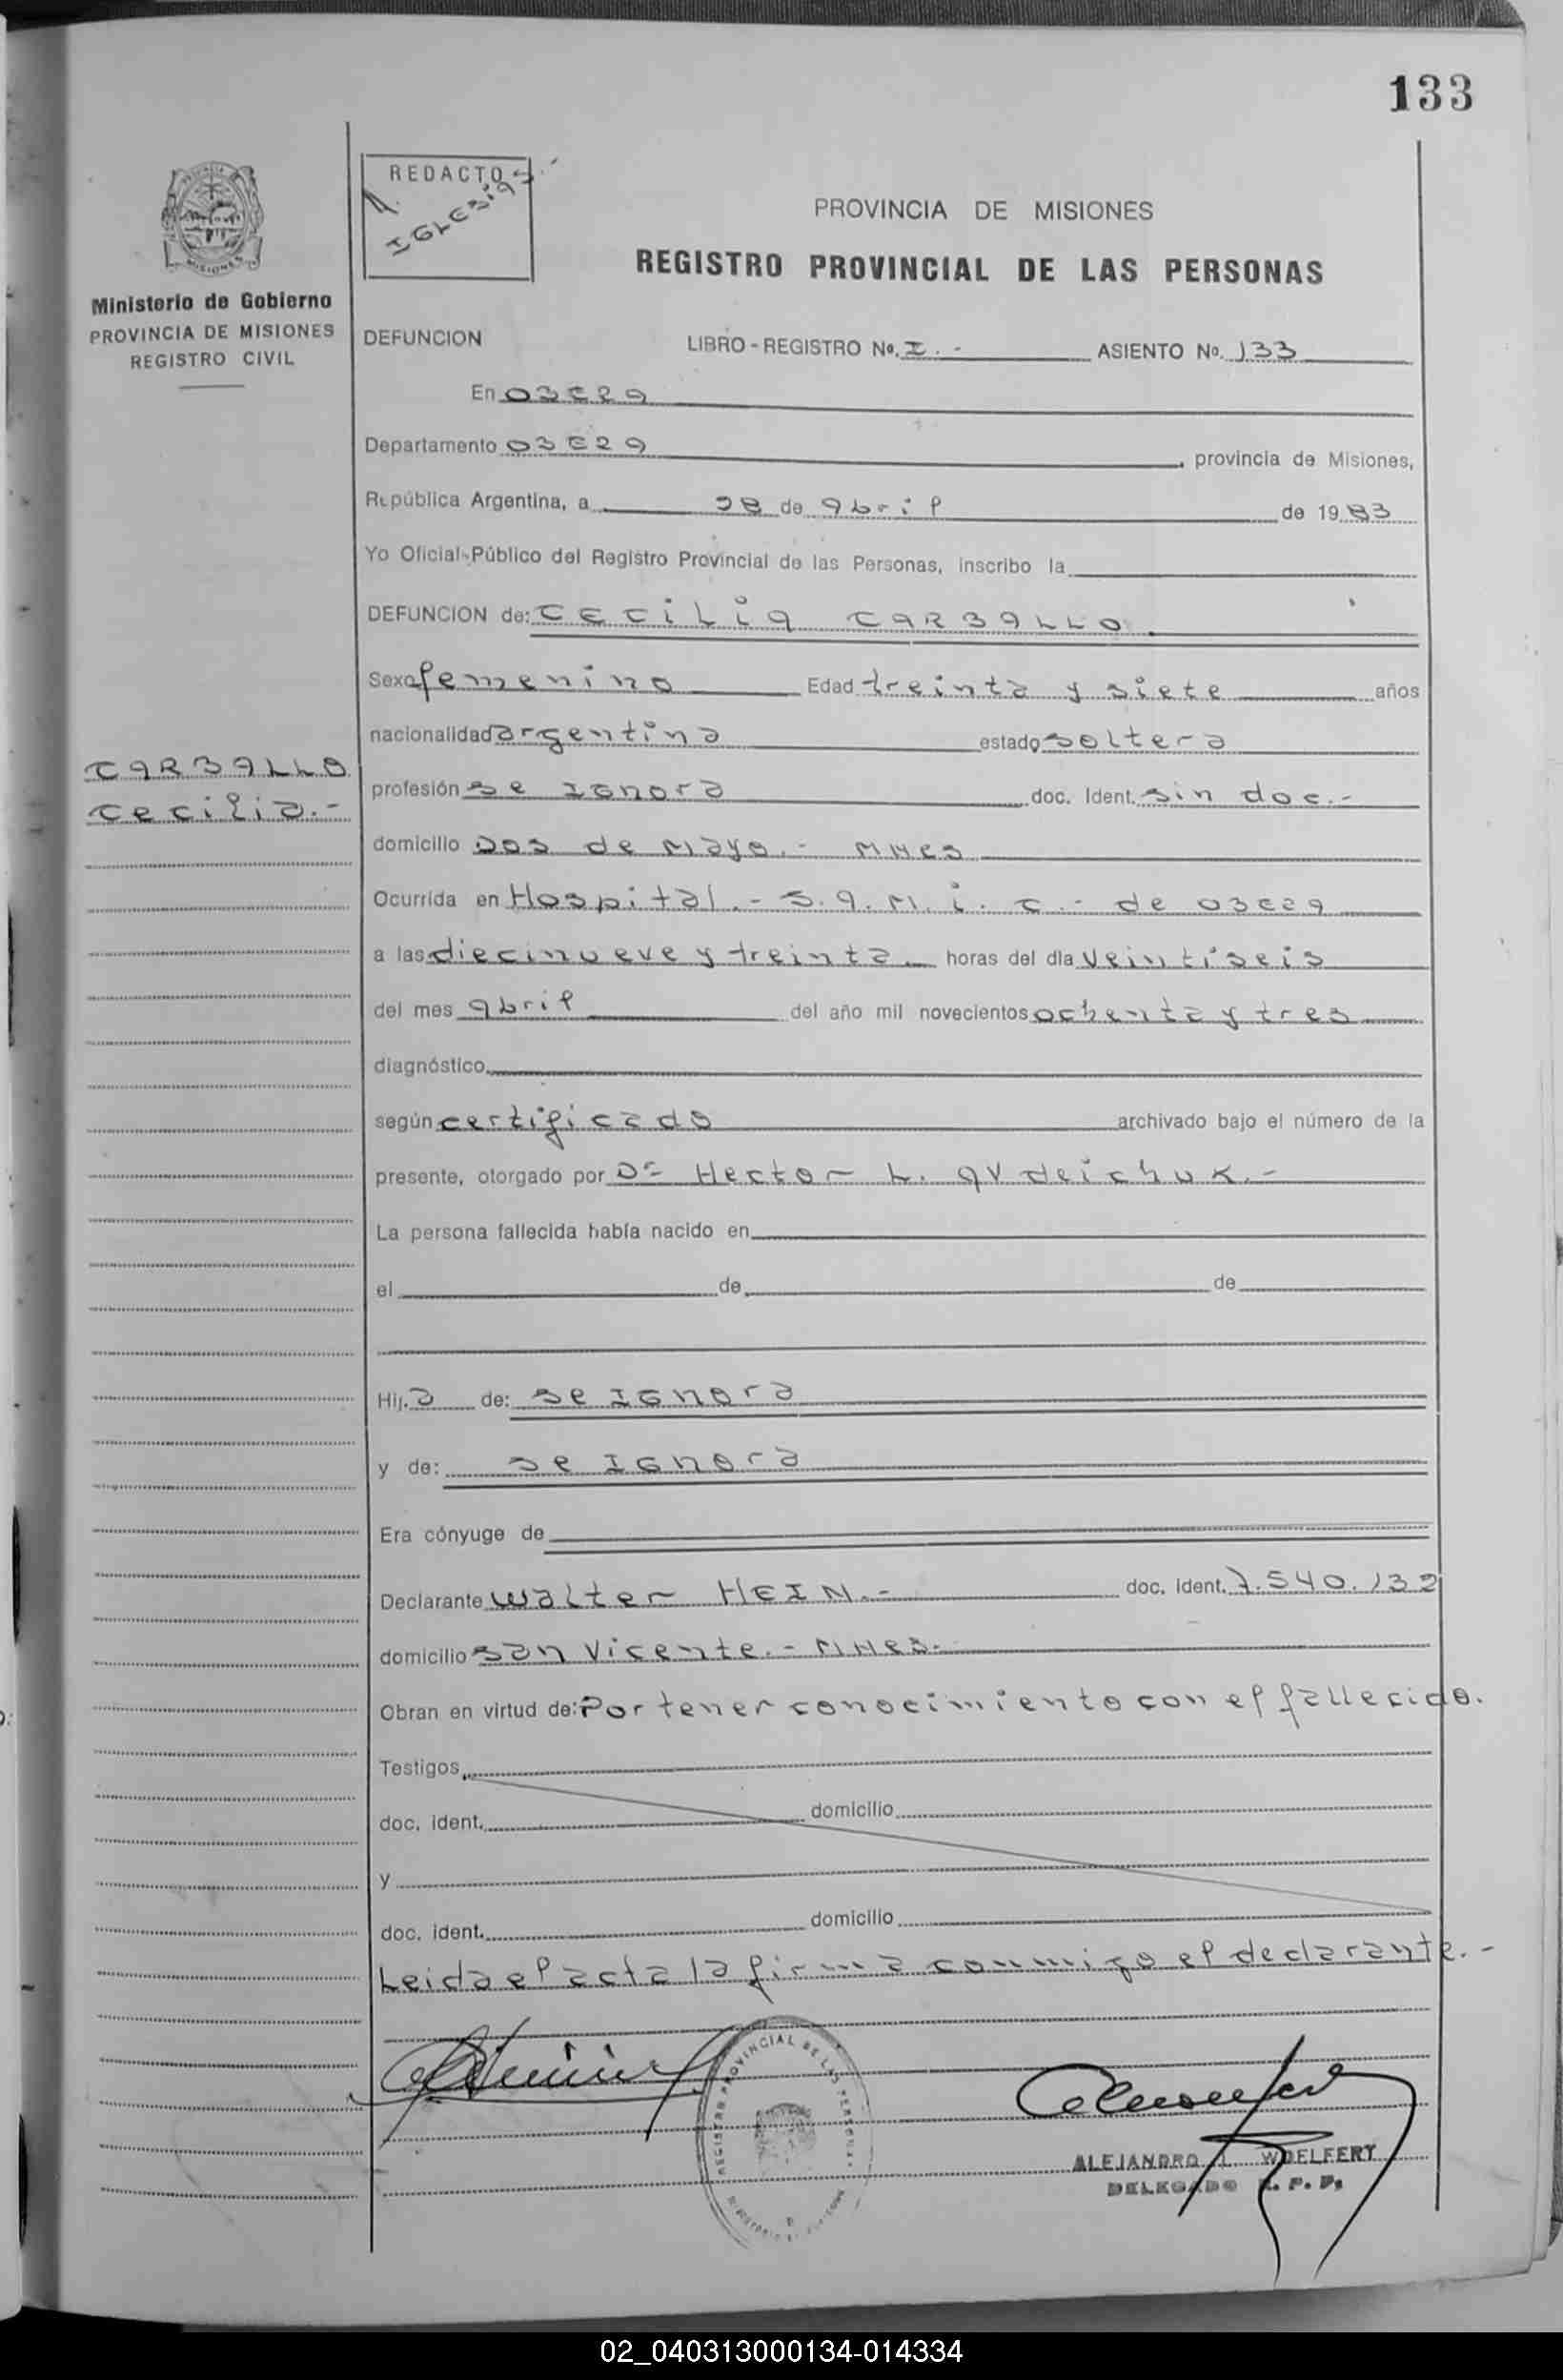 133
REDACTO
A. IGLESIAS.-
PROVINCIA DE MISIONES
REGISTRO PROVINCIAL DE LAS PERSONAS
MISIONES
Ministerio de Gobierno
PROVINCIA DE MISIONES
REGISTRO CIVIL
DEFUNCION LIBRO - REGISTRO No. I.- ASIENTO No. 133
En OBERA
Departamento OBERA, provincia de Misiones,
República Argentina, a 28 de Abril de 1983
Yo Oficial Público del Registro Provincial de las Personas, inscribo la
DEFUNCION de: CECILIA CARBALLO
Sexo femenino Edad treinta y siete años
nacionalidad argentina estado soltera
CARBALLO
Cecilia.-
profesión se Ignora doc. Ident. sin doc.-
domicilio Dos de Mayo.- MNES
Ocurrida en Hospital.- S.A.M.i.C.- de OBERA
a las diecinueve y treinta horas del día veintiseis
del mes Abril del año mil novecientos ochenta y tres
diagnóstico
según certificado archivado bajo el número de la
presente, otorgado por Dr Hector L. AVdeichuk.-
La persona fallecida había nacido en
el de de
Hij.a de: se Ignora
y de: se Ignora
Era cónyuge de
Declarante Walter HEIN.- doc. ident. 7.540.132
domicilio San Vicente.- MNES.
Obran en virtud de: Por tener conocimiento con el fallecido.
Testigos
doc. ident. domicilio
y
doc. ident. domicilio
Leida el acta la firma conmigo el declarante.-
REGISTRO PROVINCIAL DE LAS PERSONAS
ALEJANDRO WOELFERT
DELEGADO R. P. P.
02_040313000134-014334